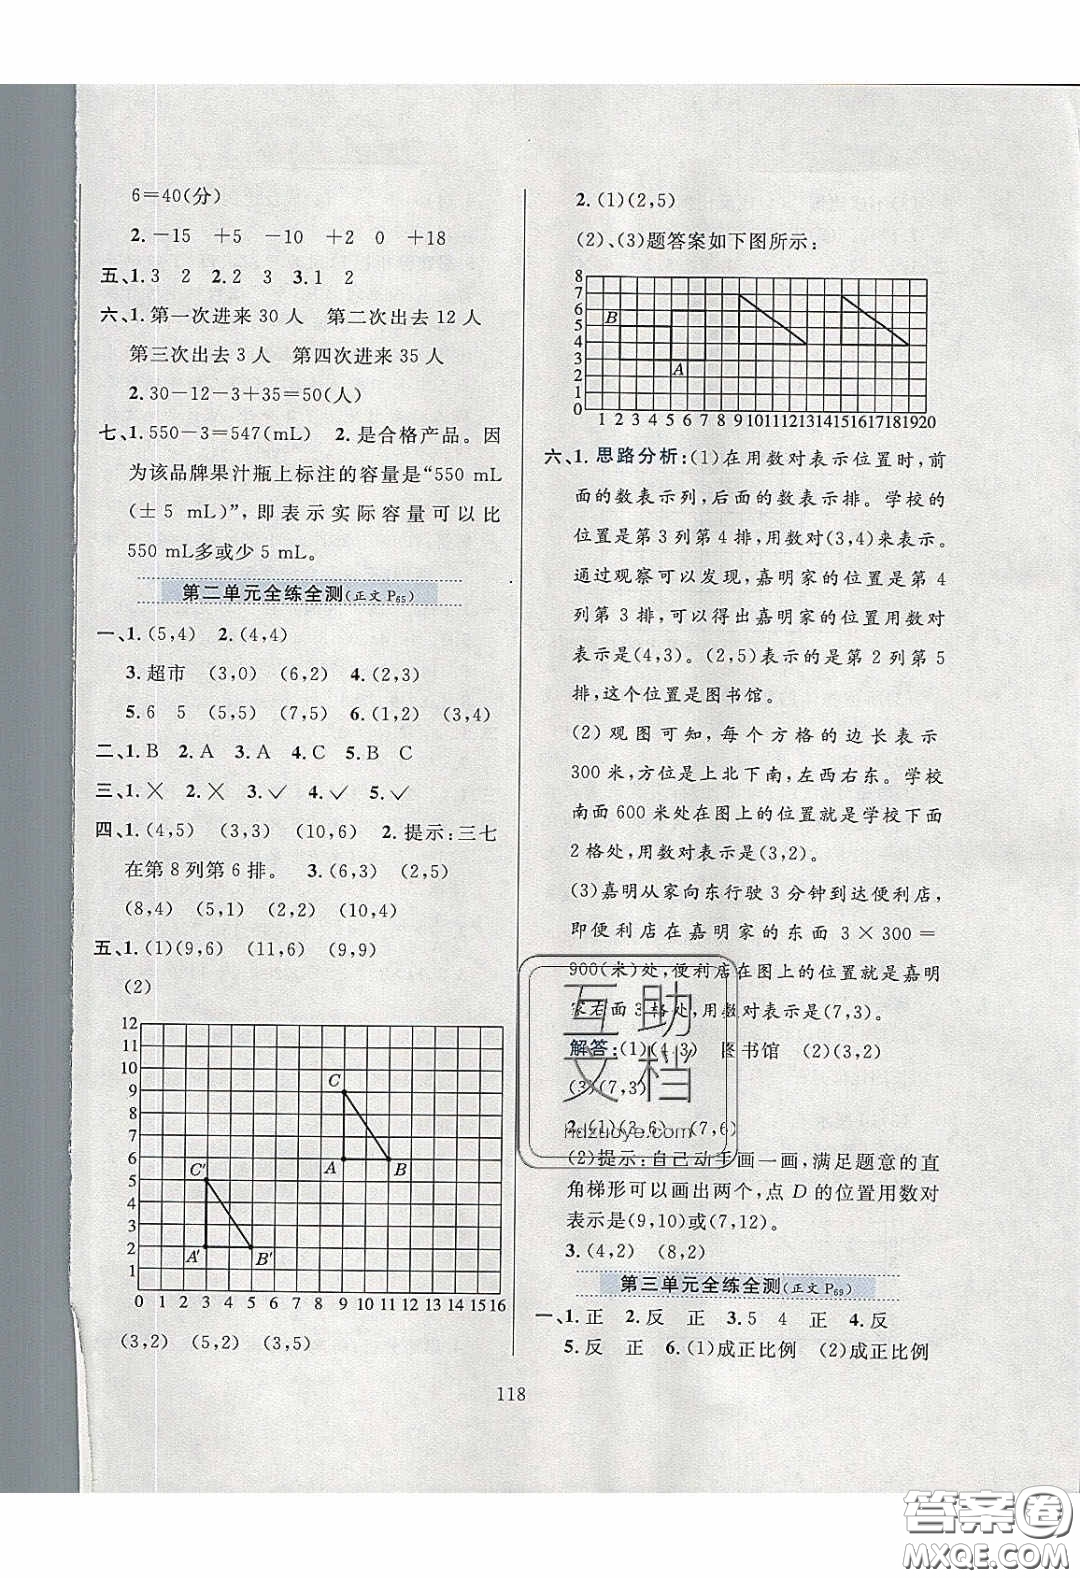 6=40(分)
2. -15 +5 -10 +2 0 +18
五、1. 3 2 2. 2 3 3. 1 2
六、1. 第一次进来 30 人 第二次出去 12 人
第三次出去 3 人 第四次进来 35 人
2. 30-12-3+35=50(人)
七、1. 550-3=547(mL) 2. 是合格产品。因
为该品牌果汁瓶上标注的容量是“550 mL
(±5 mL)”,即表示实际容量可以比
550 mL多或少 5 mL。
第二单元全练全测(正文 P65)
一、1. (5,4) 2. (4,4)
3. 超市 (3,0) (6,2) 4. (2,3)
5. 6 5 (5,5) (7,5) 6. (1,2) (3,4)
二、1. B 2. A 3. A 4. C 5. B C
三、1. × 2. × 3. ✓ 4. ✓ 5. ✓
四、1. (4,5) (3,3) (10,6) 2. 提示:三七
在第 8 列第 6 排。 3. (6,3) (2,5)
(8,4) (5,1) (2,2) (10,4)
五、1. (1)(9,6) (11,6) (9,9)
(2)
12
11
10
9
8
7
6
5
4
3
2
1
C
A B
C′
A′ B′
0 1 2 3 4 5 6 7 8 9 10 11 12 13 14 15 16
(3,2) (5,2) (3,5)
2. (1)(2,5)
(2)、(3)题答案如下图所示:
8
7
6
5
4
3
2
1
0
B
A
1 2 3 4 5 6 7 8 9 10 11 12 13 14 15 16 17 18 19 20
六、1. 思路分析:(1)在用数对表示位置时,前
面的数表示列,后面的数表示排。学校的
位置是第 3 列第 4 排,用数对(3,4)来表示。
通过观察可以发现,嘉明家的位置是第 4
列第 3 排,可以得出嘉明家的位置用数对
表示是(4,3)。(2,5)表示的是第 2 列第 5
排,这个位置是图书馆。
(2)观图可知,每个方格的边长表示
300 米,方位是上北下南,左西右东。学校
南面 600 米处在图上的位置就是学校下面
2 格处,用数对表示是(3,2)。
(3)嘉明从家向东行驶 3 分钟到达便利店,
即便利店在嘉明家的东面 3×300=
900(米)处,便利店在图上的位置就是嘉明
家右面 3 格处,用数对表示是(7,3)。
解答:(1)(4,3) 图书馆 (2)(3,2)
(3)(7,3)
2. (1)(3,6) (7,6)
(2)提示:自己动手画一画,满足题意的直
角梯形可以画出两个,点 D 的位置用数对
表示是(9,10)或(7,12)。
3. (4,2) (8,2)
第三单元全练全测(正文 P69)
一、1. 正 2. 反 正 3. 5 4 正 4. 反
5. 反 正 6. (1)成正比例 (2)成正比例
118
互助
文档
huzuoye.com
答案卷
MXQE.COM